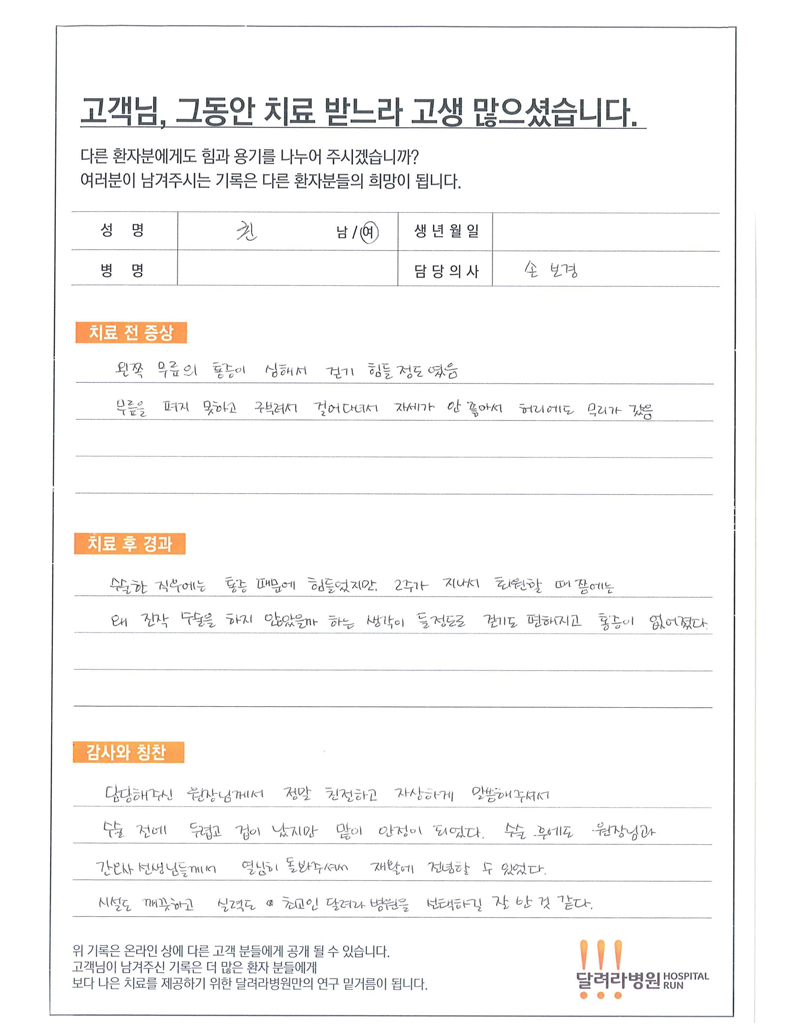 고객님, 그동안 치료 받느라 고생 많으셨습니다.
다른 환자분에게도 힘과 용기를 나누어 주시겠습니까?
여러분이 남겨주시는 기록은 다른 환자분들의 희망이 됩니다.
성 명 최 남 / 여 생년월일
병 명 담당의사 손 보경
치료 전 증상
왼쪽 무릎의 통증이 심해서 걷기 힘들 정도 였음
무릎을 펴지 못하고 구부려서 걸어다녀서 자세가 안 좋아서 허리에도 무리가 갔음
치료 후 경과
수술한 직후에는 통증 때문에 힘들었지만, 2주가 지나서 퇴원할 때 쯤에는
왜 진작 수술을 하지 않았을까 하는 생각이 들정도로 걷기도 편해지고 통증이 없어졌다.
감사와 칭찬
담당해주신 원장님께서 정말 친절하고 자상하게 말씀해주셔서
수술 전에 두렵고 겁이 났지만 많이 안정이 되었다. 수술 후에도 원장님과
간호사 선생님들께서 열심히 돌봐주셔서 재활에 전념할 수 있었다.
시설도 깨끗하고 실력도 최고인 달려라 병원을 선택하길 잘 한 것 같다.
위 기록은 온라인 상에 다른 고객 분들에게 공개 될 수 있습니다.
고객님이 남겨주신 기록은 더 많은 환자 분들에게
보다 나은 치료를 제공하기 위한 달려라병원만의 연구 밑거름이 됩니다.
달려라병원 HOSPITAL RUN